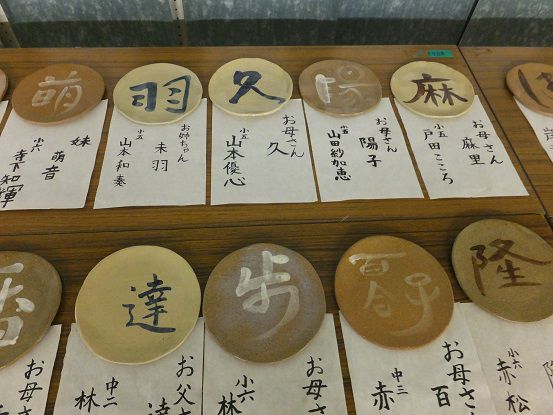 麻
お母さん
麻里
小五
戸田こころ
陽
お母さん
陽子
小五
山田紗加恵
久
お母さん
久
小五
山本優心
羽
お姉ちゃん
未羽
小五
山本和奏
萌
妹
萌音
小六
寺下智輝
隆
小六
赤松
百合子
お母さ
百
中三
赤
歩
お母さん
小六
林
達
お父さ
達
中二
林
お母さ